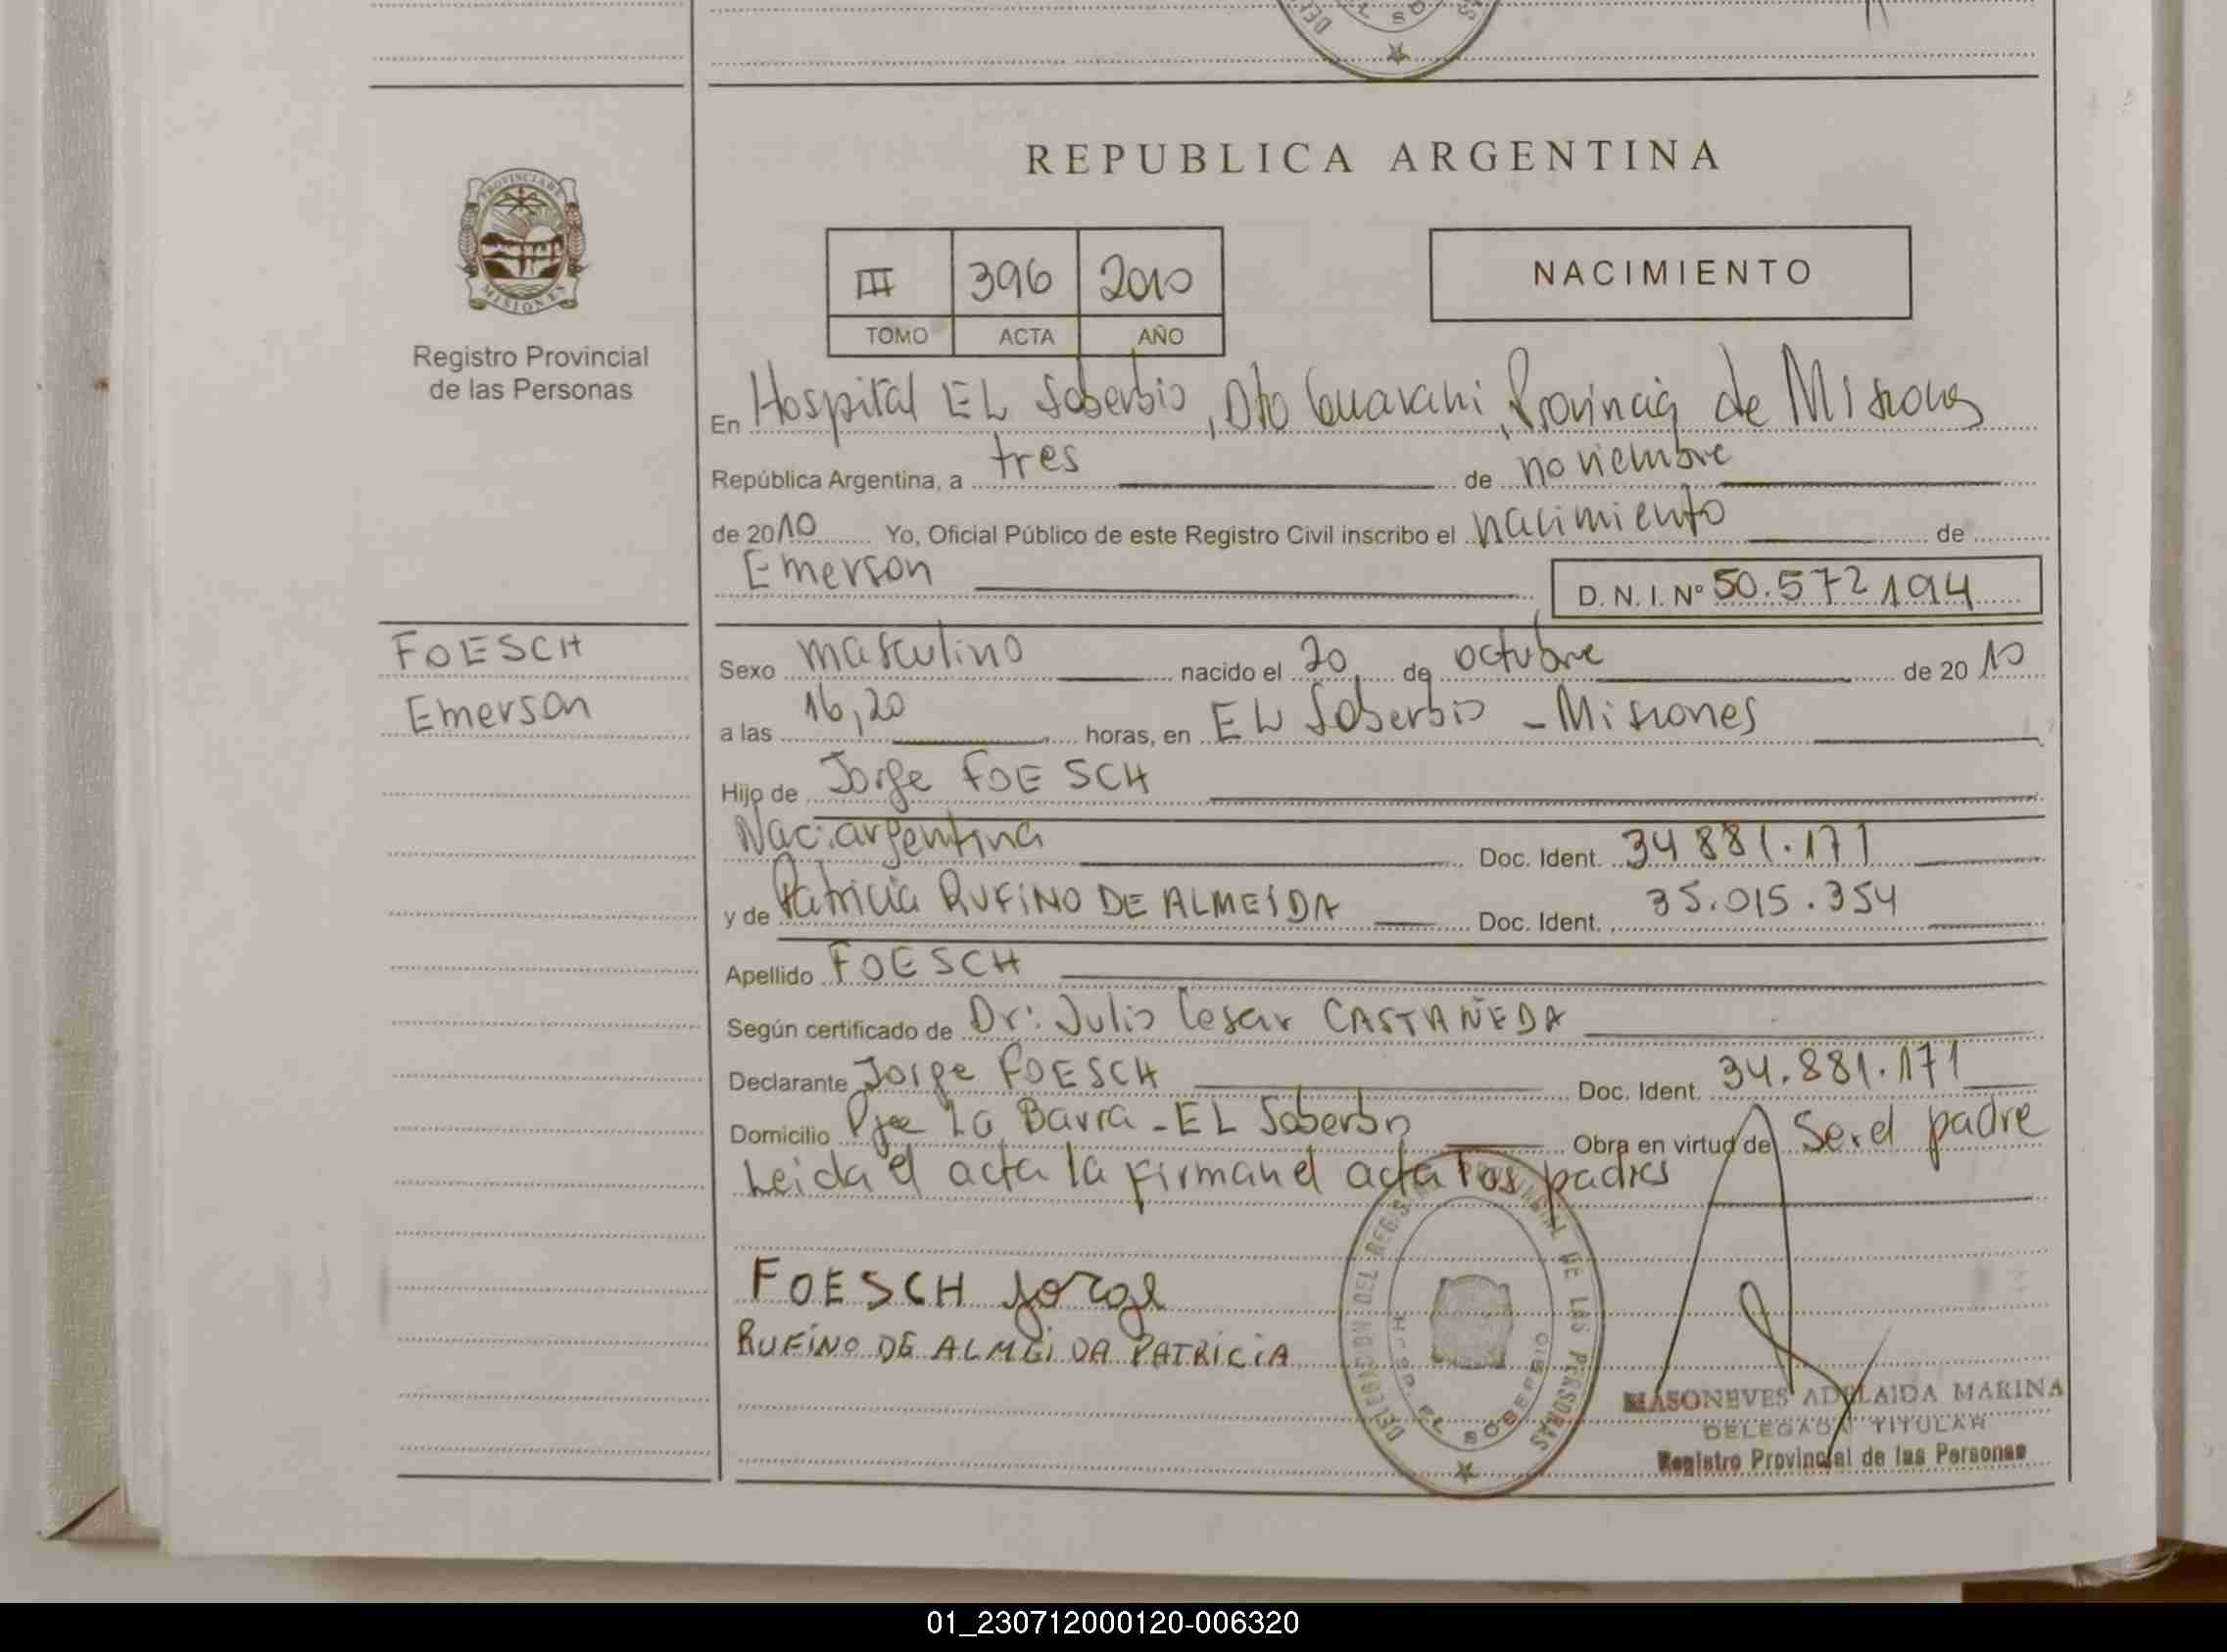 REPUBLICA ARGENTINA
PROVINCIA DE
MISIONES
Registro Provincial
de las Personas
III 396 2010
TOMO ACTA AÑO
NACIMIENTO
En Hospital EL Soberbio, Dto Guarani, Provincia de Misiones
República Argentina, a tres de noviembre
de 2010 Yo, Oficial Público de este Registro Civil inscribo el nacimiento de
Emerson D.N.I. Nº 50.572194
FOESCH
Emerson
Sexo masculino nacido el 20 de octubre de 2010
a las 16,20 horas, en EL Soberbio - Misiones
Hijo de Jorge FOESCH
Nac: argentina Doc. Ident. 34 881.171
y de Patricia RUFINO DE ALMEIDA Doc. Ident. 35.015.354
Apellido FOESCH
Según certificado de Dr: Julio Cesar CASTAÑEDA
Declarante Jorge FOESCH Doc. Ident. 34.881.171
Domicilio Pje La Barra - EL Soberbio Obra en virtud de Ser el padre
Leida el acta la firman el acta los padres
FOESCH Jorge
RUFINO DE ALMEIDA PATRICIA
DELEGACION DEL REGISTRO PROVINCIAL DE LAS PERSONAS
HOSP. EL SOBERBIO
MASONEVES ADELAIDA MARINA
DELEGADA TITULAR
Registro Provincial de las Personas
01_230712000120-006320